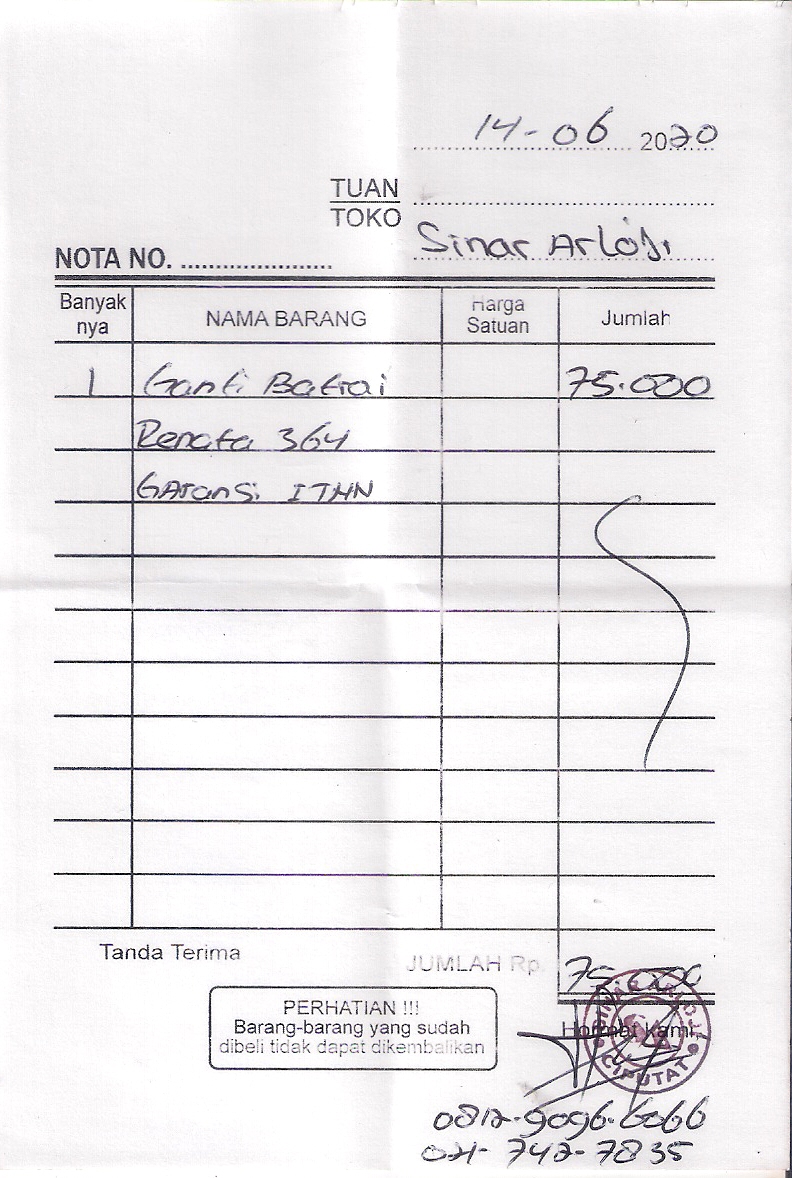 14-06 2020
TUAN
TOKO Sinar Arloji
NOTA NO. ......................
Banyak nya NAMA BARANG Harga Satuan Jumlah
1 Ganti Batrai 75.000
Renata 364
GAransi 1THN
Tanda Terima JUMLAH Rp. 75.000
PERHATIAN !!!
Barang-barang yang sudah
dibeli tidak dapat dikembalikan
Hormat Kami
SINAR ARLOJI
CIPUTAT
0812-9096-6066
021-742-7835